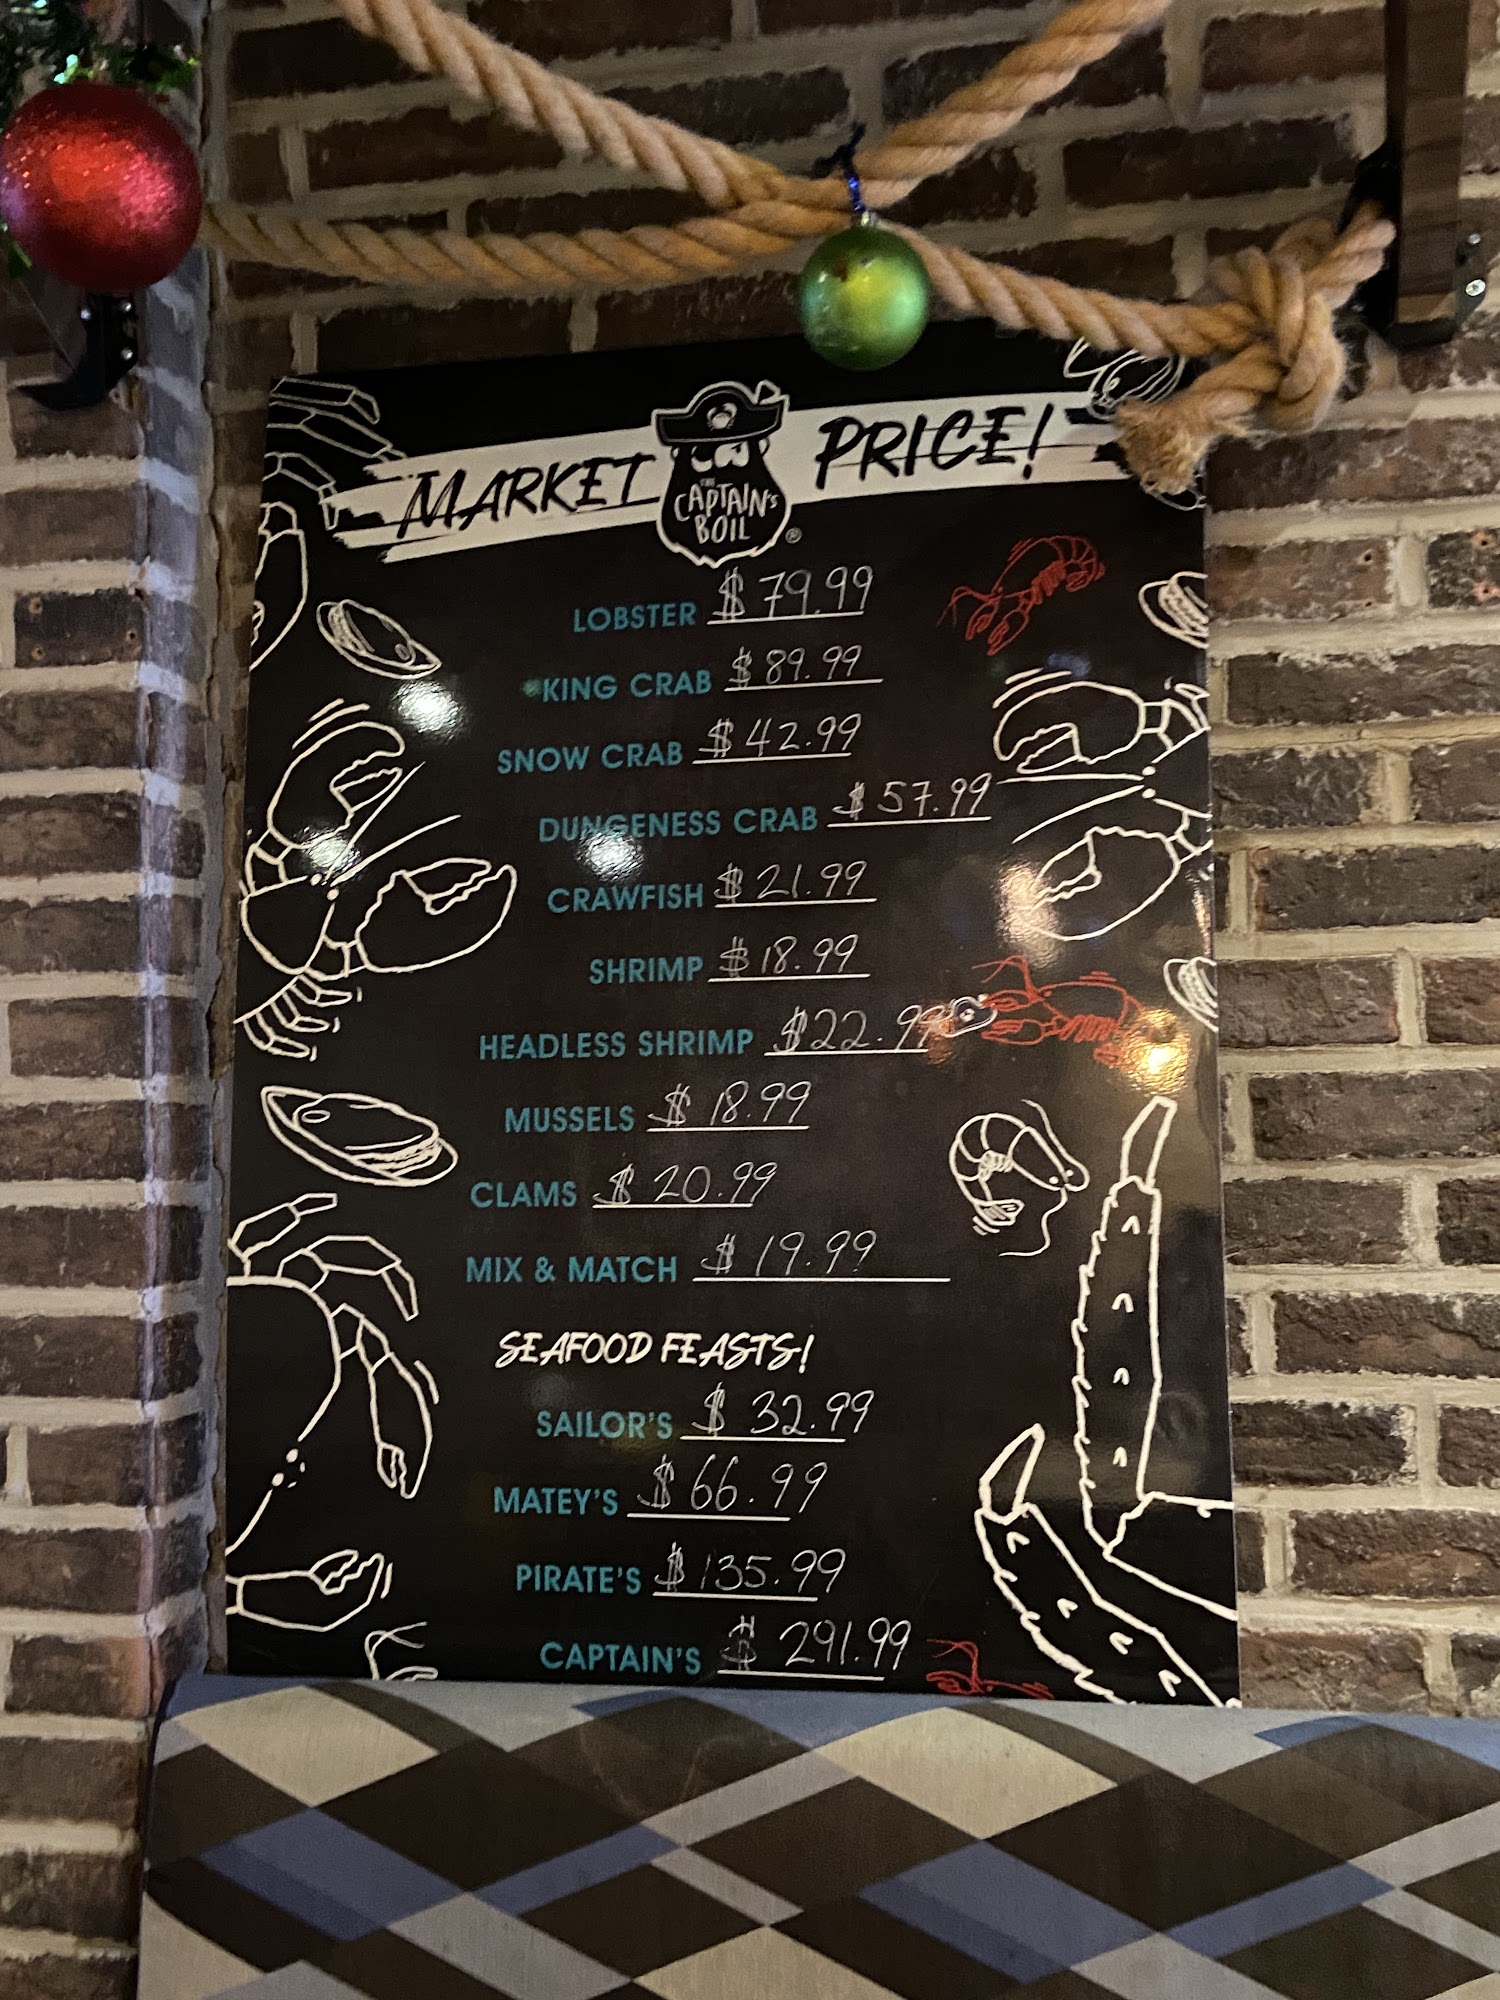 MARKET THE CAPTAIN'S BOIL ® PRICE!
LOBSTER $79.99
KING CRAB $89.99
SNOW CRAB $42.99
DUNGENESS CRAB $57.99
CRAWFISH $21.99
SHRIMP $18.99
HEADLESS SHRIMP $22.99
MUSSELS $18.99
CLAMS $20.99
MIX & MATCH $19.99
SEAFOOD FEASTS!
SAILOR'S $32.99
MATEY'S $66.99
PIRATE'S $135.99
CAPTAIN'S $291.99